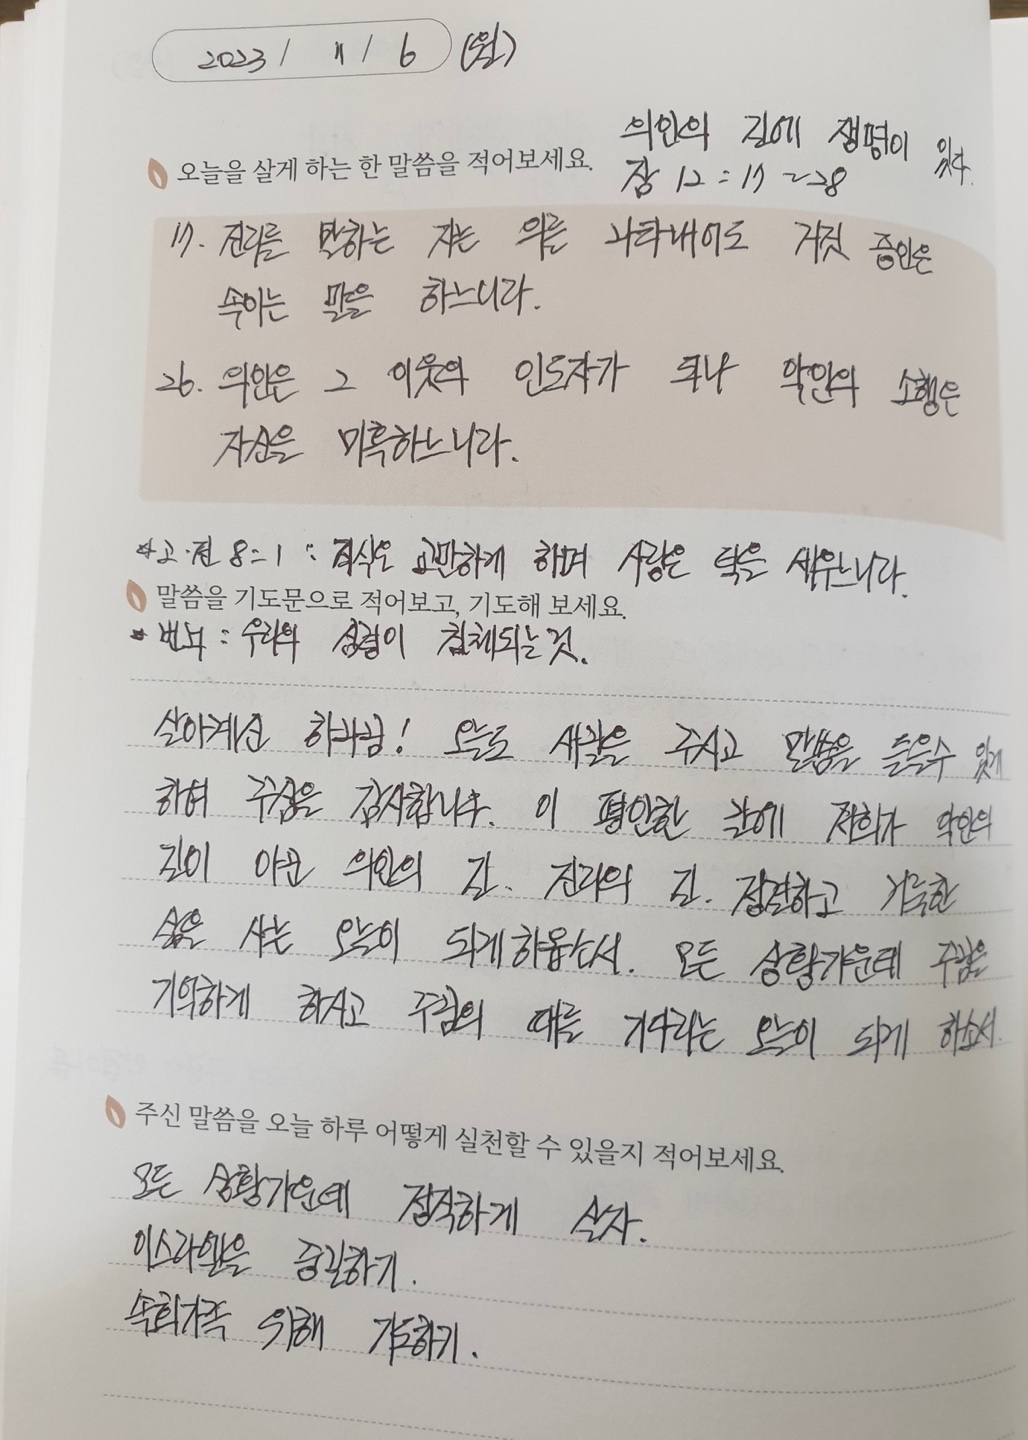 2023 / 11 / 6 (월)
의인의 길에 생명이 있다.
오늘을 살게 하는 한 말씀을 적어보세요.
잠 12 = 17 ~ 28
17. 진리를 말하는 자는 의를 나타내어도 거짓 증인은
속이는 말을 하느니라.
26. 의인은 그 이웃의 인도자가 되나 악인의 소행은
자신을 미혹하느니라.
*고.전 8=1 : 지식은 교만하게 하며 사랑은 덕을 세우느니라.
말씀을 기도문으로 적어보고, 기도해 보세요.
* 번뇌 : 우리의 심령이 침체되는것.
살아계신 하나님! 오늘도 새날을 주시고 말씀을 들을수 있게
하여 주심을 감사합니다. 이 평안한 날에 저희가 악인의
길이 아닌 의인의 길. 진리의 길. 정결하고 거룩한
삶을 사는 오늘이 되게하옵소서. 모든 상황가운데 주님을
기억하게 하시고 주님의 때를 기다리는 오늘이 되게 하소서
주신 말씀을 오늘 하루 어떻게 실천할 수 있을지 적어보세요.
모든 상황가운데 정직하게 살자.
이스라엘을 하기.
속회가족 위해 기도하기.